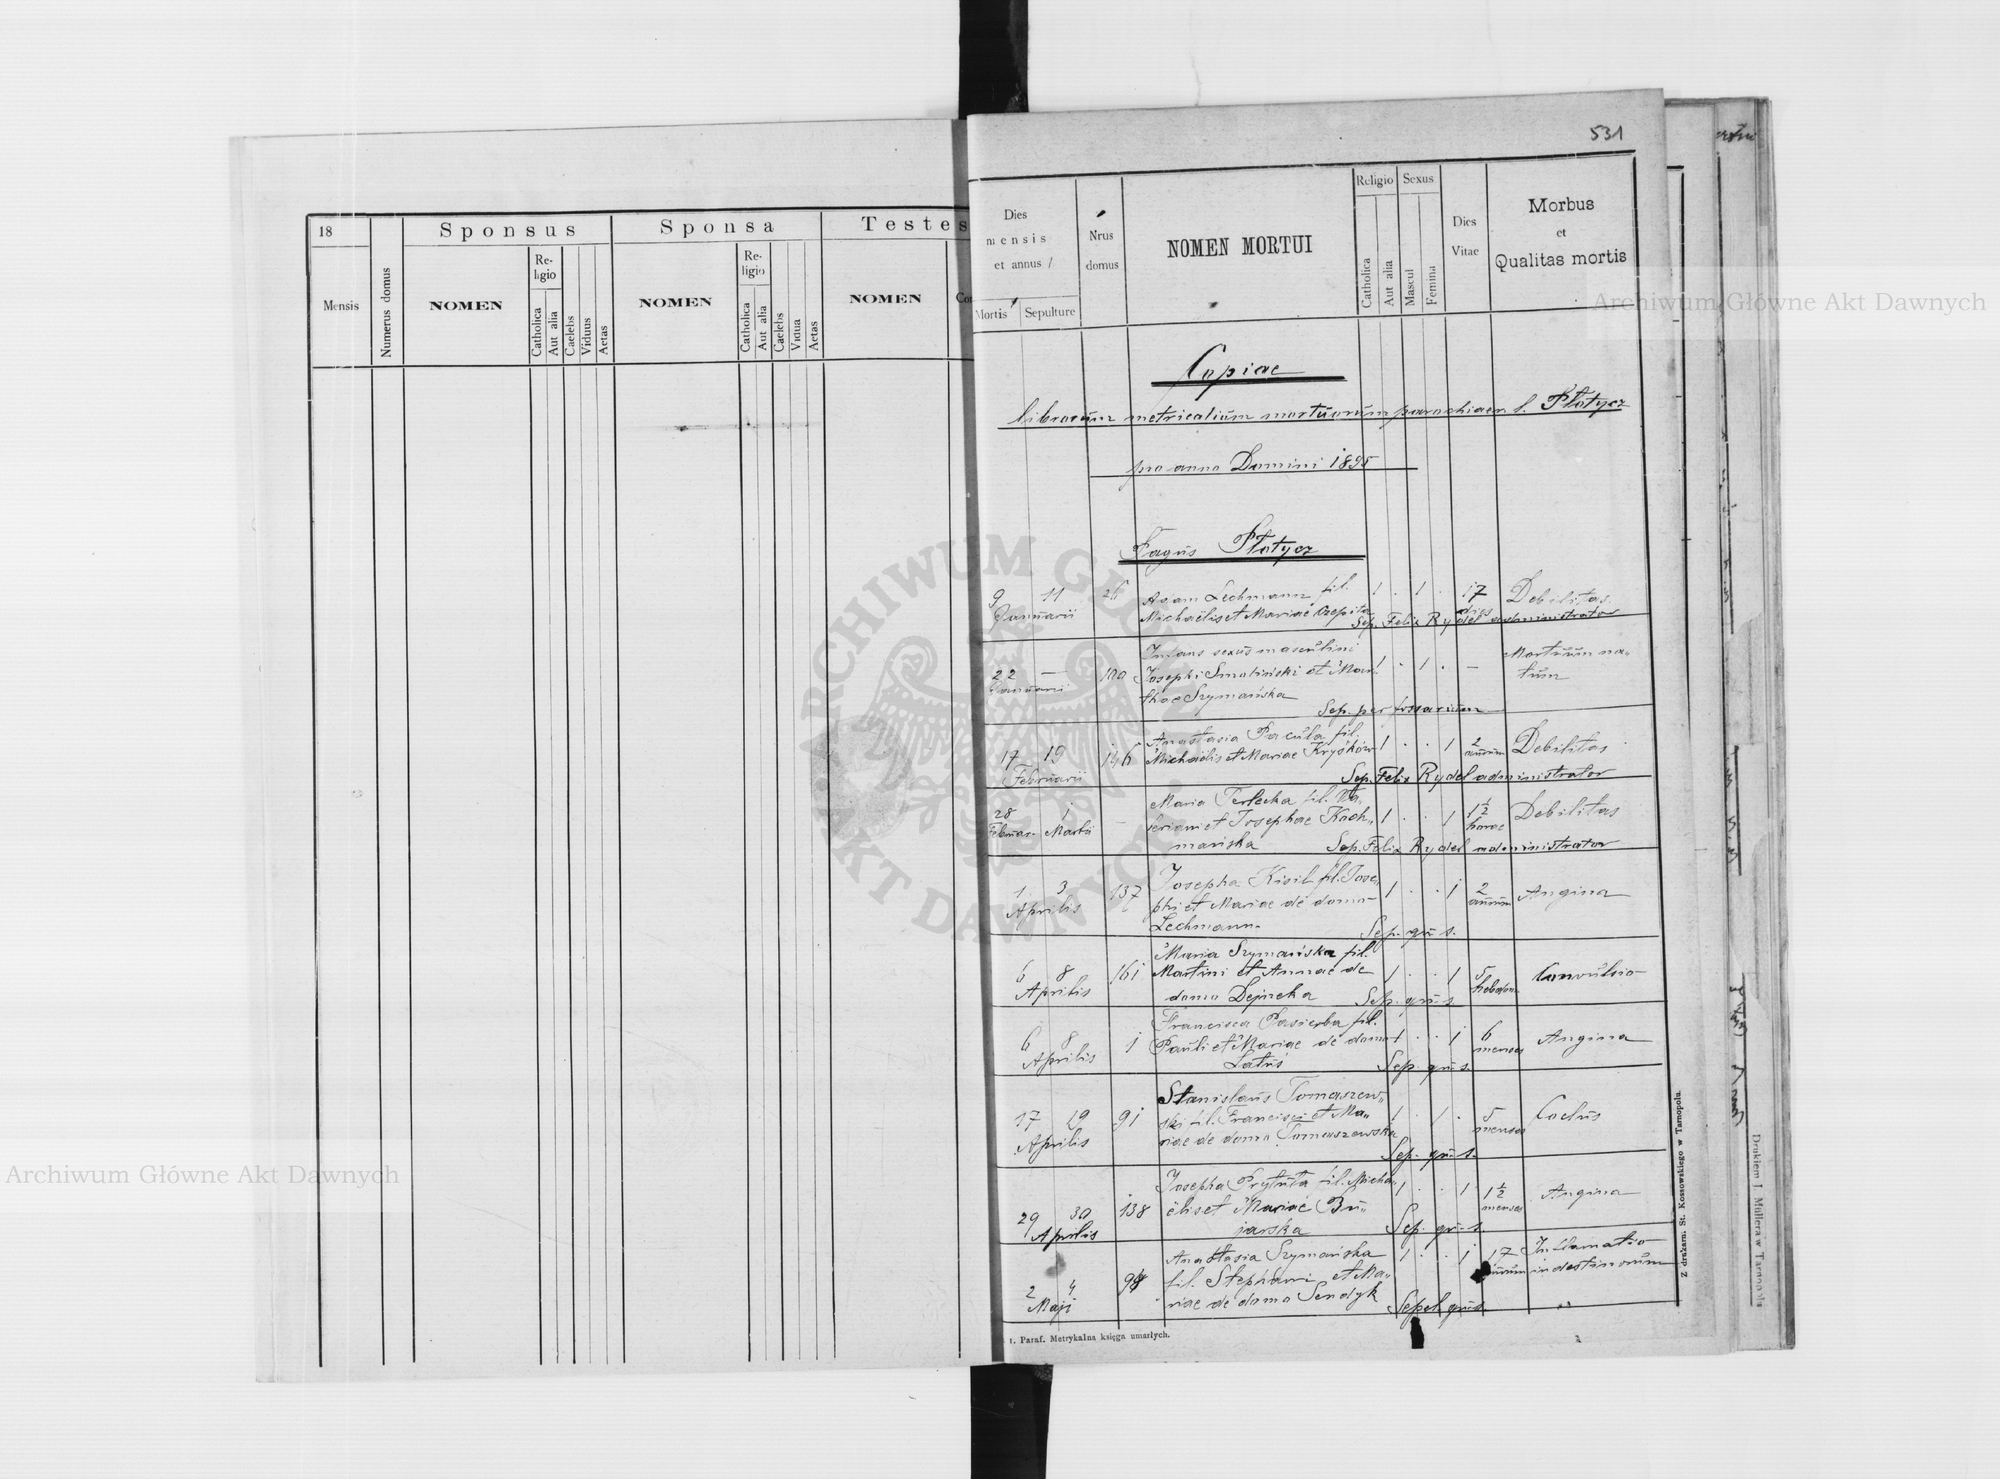 18
Mensis
Numerus domus
Sponsus
NOMEN
Re-
ligio
Catholica
Aut alia
Caelebs
Viduus
Aetas
Sponsa
NOMEN
Re-
ligio
Catholica
Aut alia
Caelebs
Vidua
Aetas
Testes
NOMEN
531
Dies
mensis
et annus
Mortis
Sepulture
Nrus
domus
NOMEN MORTUI
Religio
Catholica
Aut alia
Sexus
Mascul
Femina
Dies
Vitae
Morbus
et
Qualitas mortis
Copiae
librorum metricalium mortuorum parochiae r. l. Płotycz
pro anno Domini 1895
Pagus Płotycz
9 11 26 Adam Lechmann fil. 1 . 1 . 17 Debilitas
Januarii Michaëlis et Mariae Czepita dies
Sep. Felix Rydel administrator
Infans sexus masculini Mortuum na-
22 — 100 Josephi Smoliński et Mar- 1 . 1 . — tum
Januarii thae Szymańska
Sep. per fossarium
17 19 146 Anastasia Pacuła fil. 1 . . 1 2 Debilitas
Februarii Michaëlis et Mariae Kryśków annum
Sep. Felix Rydel administrator
28 1 — Maria Terlecka fil. Va- 1 . . 1 1½ Debilitas
Februar- Martii leriani et Josephae Koch- horae
mańska Sep. Felix Rydel administrator
1 3 137 Josepha Kisil fil. Jose- 1 . . 1 2 Angina
Aprilis phi et Mariae de domo annum
Lechmann Sep. qu. s.
6 8 161 Maria Szymańska fil. 1 . . 1 5 Convulsio
Aprilis Martini et Annae de hebdom.
domo Dejneka Sep. qu. s.
6 8 1 Francisca Pasierba fil. 1 . . 1 6 Angina
Aprilis Pauli et Mariae de domo menses
Latuś Sep. qu. s.
17 19 91 Stanislaus Tomaszew- 1 . 1 . 5
Aprilis ski fil. Francisci et Ma- menses
riae de domo Tomaszewska
Sep. qu. s.
29 30 138 Josepha Prytuła fil. Micha- 1 . . 1 1½ Angina
Aprilis ëlis et Mariae Bu- menses
jarska Sep. qu. s.
Anastasia Szymańska 1 . . 1 17 Inflamatio
2 4 fil. Stephani et Ma- annum indestinorum
Maji riae de domo Sendyk
Sepel. qu. s.
1. Paraf. Metrykalna księga umarłych.
Z drukarn. St. Kossowskiego w Tarnopolu
Drukiem J. Müllera w Tarnopolu
Archiwum Główne Akt Dawnych
Archiwum Główne Akt Dawnych
ARCHIWUM GŁÓWNE AKT DAWNYCH